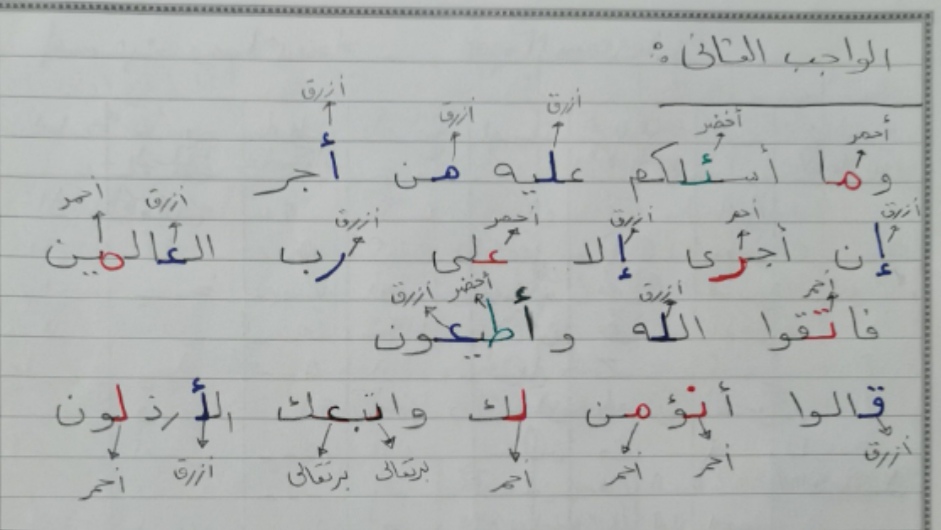 الواجب الثانى :
أزرق أزرق أزرق أخضر أحمر
وما أسئلكم عليه من أجر
أزرق أحمر أزرق أحمر أزرق أزرق أحمر
إن أجرى إلا على رب العالمين
أحمر أزرق أخضر أزرق
فاتقوا الله وأطيعون
قالوا أنؤمن لك واتبعك الأرذلون
أزرق أحمر أحمر أحمر برتقالى برتقالى أزرق أحمر